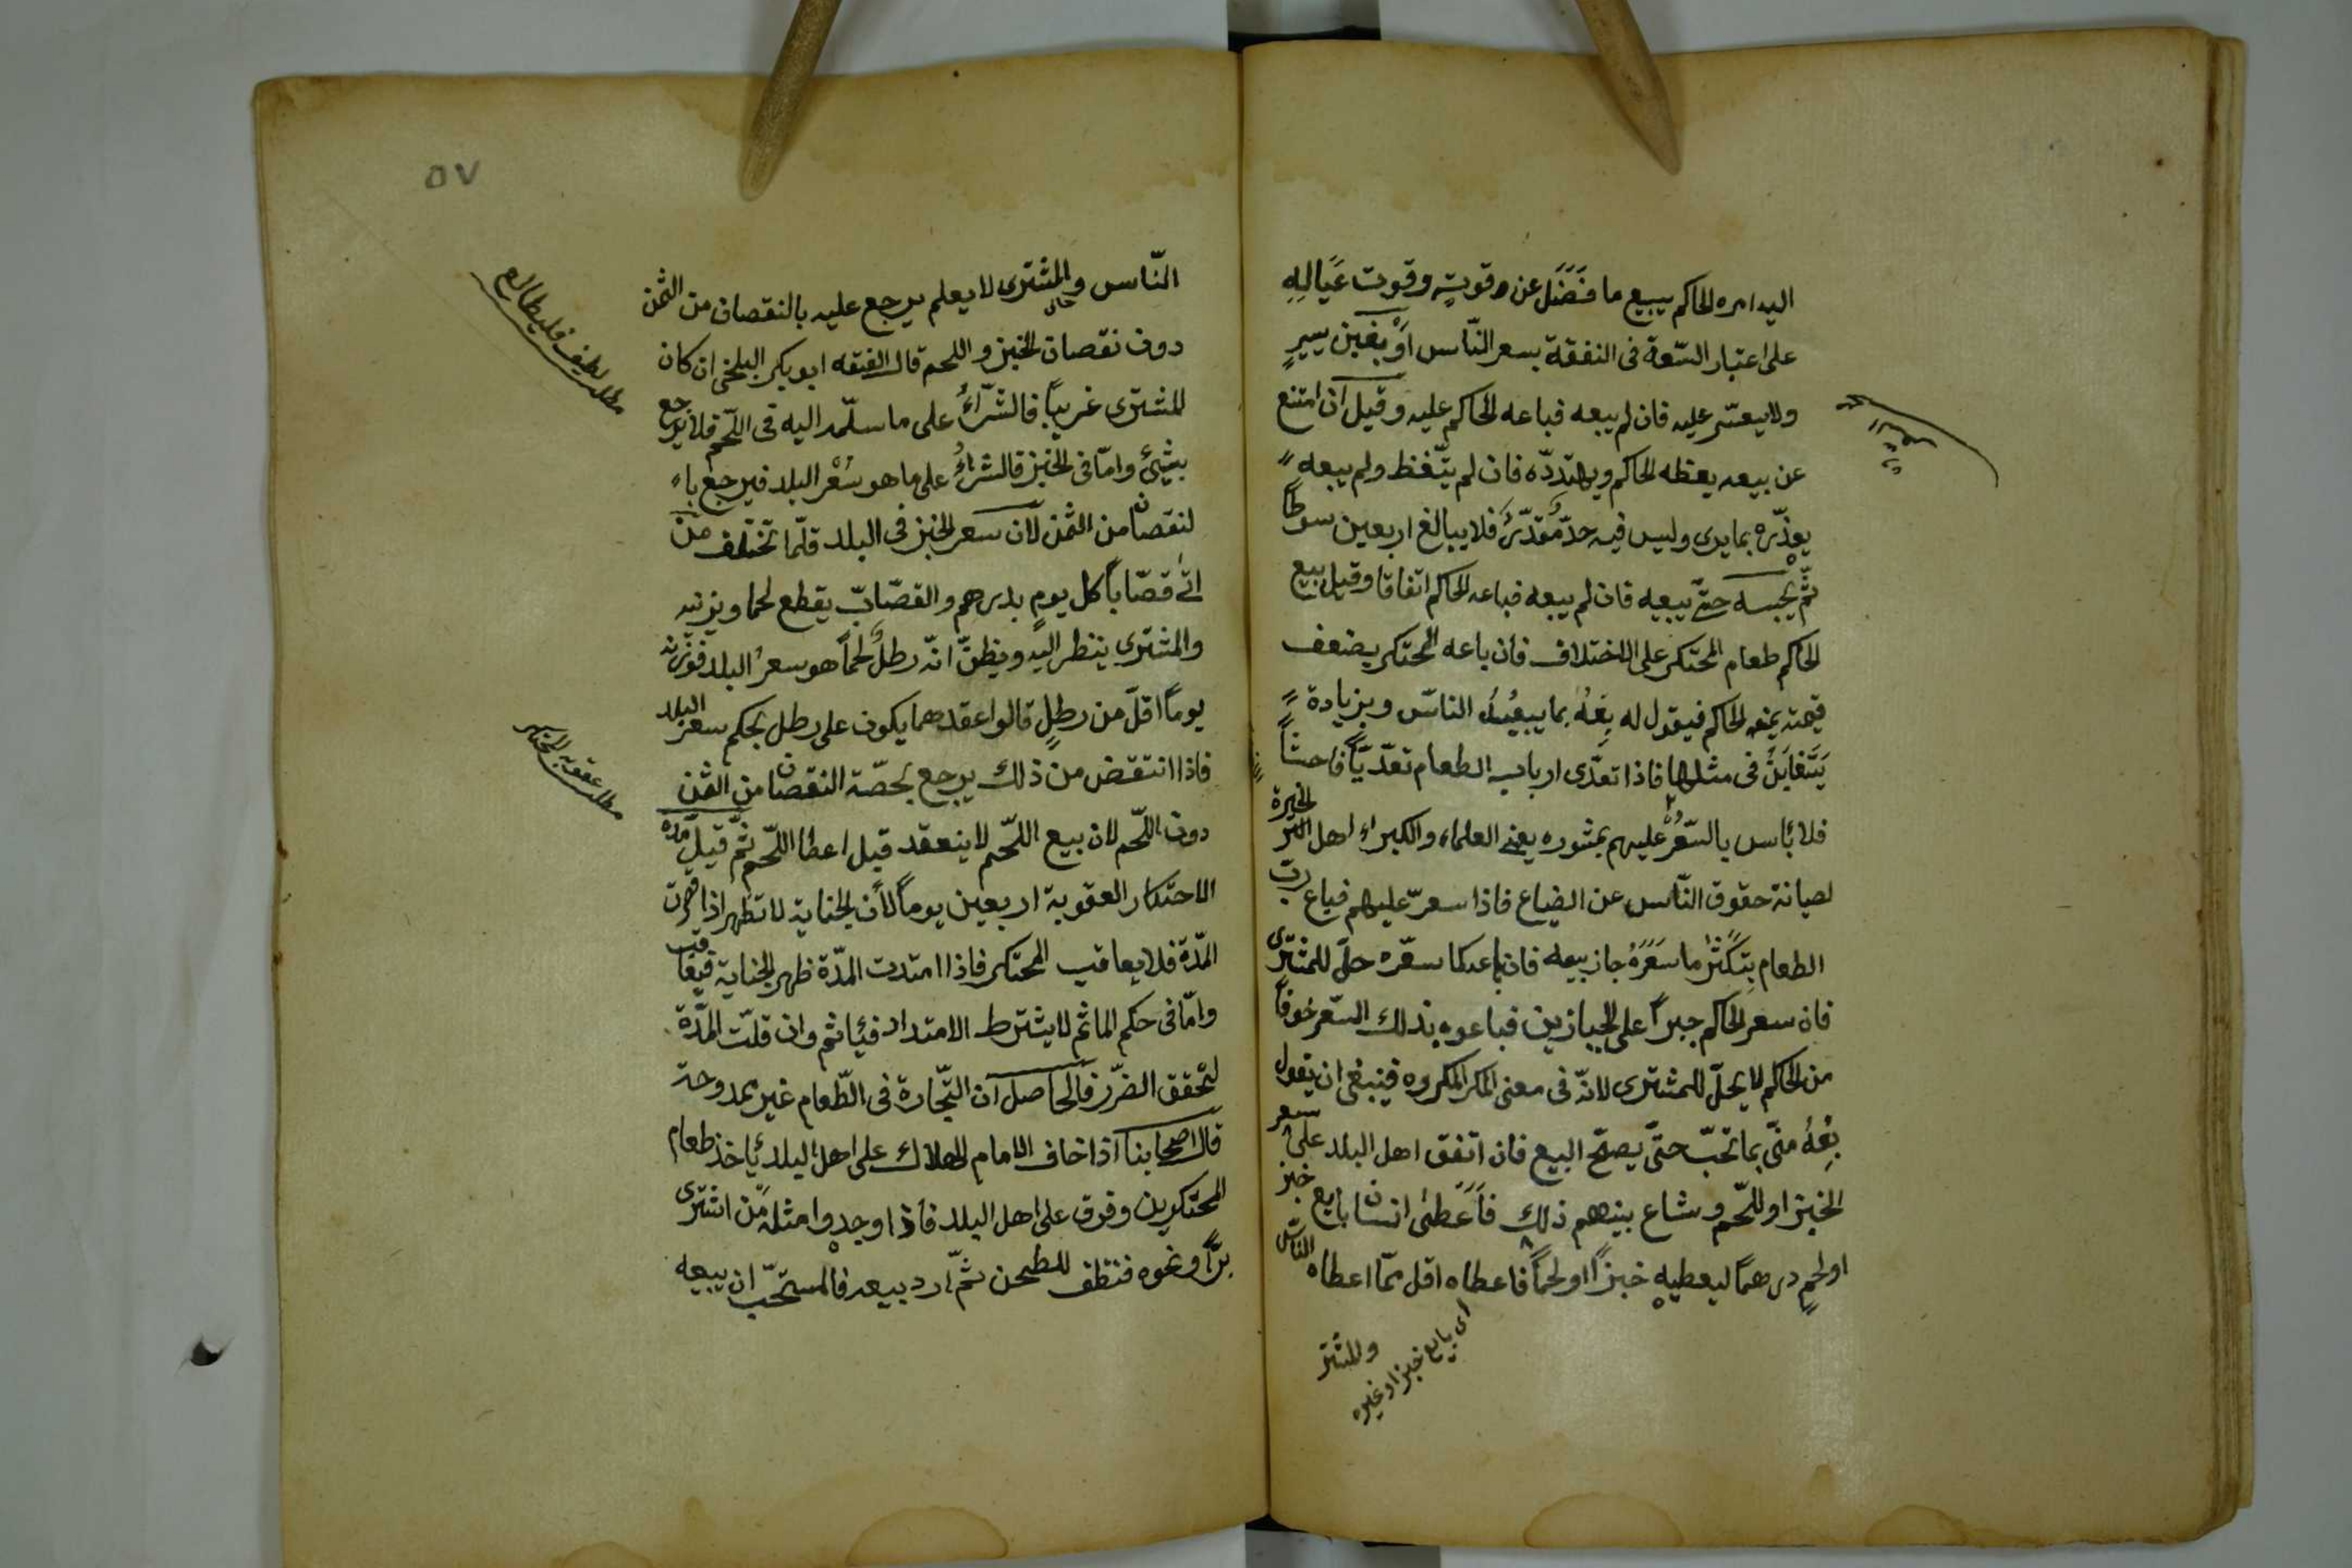 اليه امره الحاكم يبيع ما فَضَلَ عن قوتِه وقوت عَيَالِهِ
على اعتبار السّعة فى النفقة بسعر النّاس أوْ بغبن يسيرٍ
ولا يعسّر عليه فان لم يبعه فباعه الحاكم عليه وقيل ان امتنع
عن بيعه يعظه الحاكم ويهتددّه فان لم يتّغظ ولم يبعه
يعذّره بما يرى وليس فيه حدّ مُقدّرٌ فلا يبالغ اربعين سوطًا
ثمّ يحبسه حتّى يبيعه فان لم يبعه فباعه الحاكم اتفاقا وقيل بيع
الحاكم طعام المحتكر على الاختلاف فان باعه المحتكر بضعف
قيمته يمنعه الحاكم فيقول له بِعْهُ بما يبيعُهُ الناسّ وبزيادة
يَتَغابَنُ فى مثلها فاذا تعدّى ارباب الطعام تعدّيًا فاحشًا
فلا بأس بالسّعْرُ عليهم بمشوره يعنى العلماء والكبراء اهل الخبرة
لصيانة حقوق النّاس عن الضياع فاذا سعرّ عليهم فباع ربّ
الطعام بِتكثرْ ما سَعَرَهُ جاز بيعه فان باعه كما سعّره حلّ للمشترى
فان سعر الحاكم جبرًا على الخبازين فباعوه بذلك السّعر خوفًا
من الحاكم لا يحلّ للمشترى لانّه فى معنى المكر المكروه فينبغى ان يقول
بِعْهُ منّى بما تحبّ حتّى يصحّ البيع فان اتفق اهل البلد على سعر
الخبز او للّحم وشاع بينهم ذلك فَأَعَطىٰ انسان بايع خبز
او لحمٍ درهمًا ليعطيه خبزًا او لحمًا فاعطاه اقل ممّا اعطاه النّاس
اى بايع خبز او غيره
والمشتر
٥٧
النّاس والمشترى لا يعلم يرجع عليه بالنقصان من الثمن
دون نقصان الخبز واللحم قال الفقه ابو بكر البلخى ان كان
المشترى غريبًا فالشّرآءُ على ما سلّمه اليه فى اللّحم فلا يرجع
بشئ وامّا فى الخبز فالشراءُ على ما هو سُعْر البلد فيرجع باء
لنقصان من الثمن لانّ سعر الخبز فى البلد قلّما تختلف من
اتٰى قصّابًا كل يومٍ بدرهم والقصّابّ يقطع لحما ويزنه
والمشترى ينظر اليه ويظنّ انّه رطلٌ لحمًا هو سعرُ البلد فوزنه
يومًا اقلّ من رطلٍ قالوا عقدهما يكون على رطل بحكم سعر البلد
فاذا انتقض من ذلك يرجع بحصّة النقصان من الثمن
دون اللّحم لان بيع اللّحم لا ينعقد قبل اعطا اللّحم ثمّ قيل مدّه
الاحتكار العقوبة اربعين يومًا لأن الجناية لا تظهر اذا قصرت
المدّة فلا يعاقب المحتكر فاذا امتدت المدّة ظهر الجناية فيعاقب
وامّا فى حكم الماثم لا يشترط الامتداد فيأثم وان قلّت المدّة
لتحقق الضّرر فالحاصل ان التّجارة فى الطّعام غير ممدوحة
قال اصحابنا اذا خاف الامام الهلاك على اهل البلد يأخذ طعام
المحتكرين وفرق على اهل البلد فاذا وجدوا مثله من اشترى
برًّا ونحوه فنظف للطحن ثمّ ارد بيعه فالمستحبّ ان يبيعه